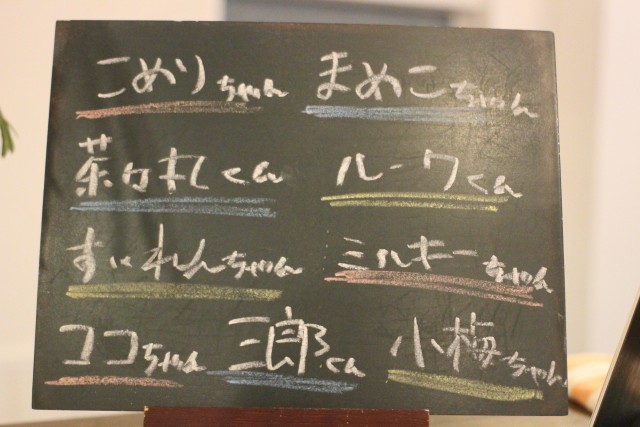 こめりちゃん まめこちゃん
茶々丸くん ルークくん
すいれんちゃん ミルキーちゃん
ココちゃん 三郎くん 小梅ちゃん